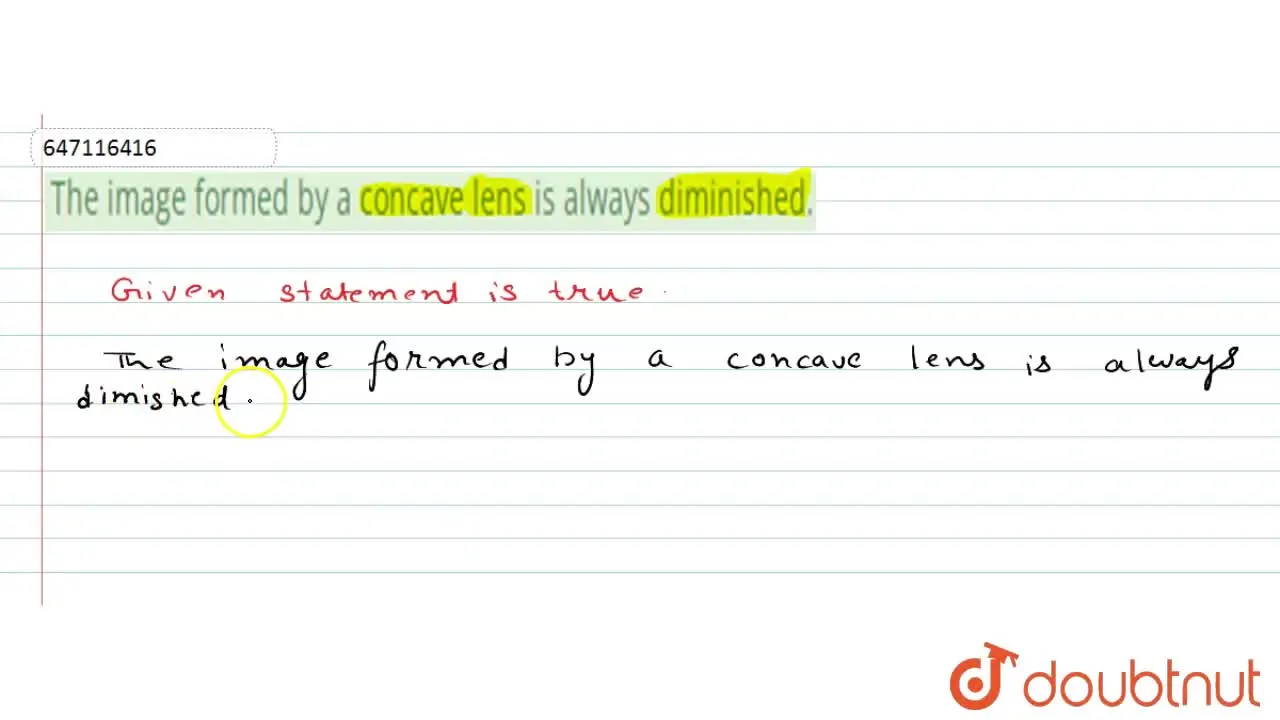 647116416
The image formed by a concave lens is always diminished.
Given statement is true.
The image formed by a concave lens is always
dimished.
doubtnut